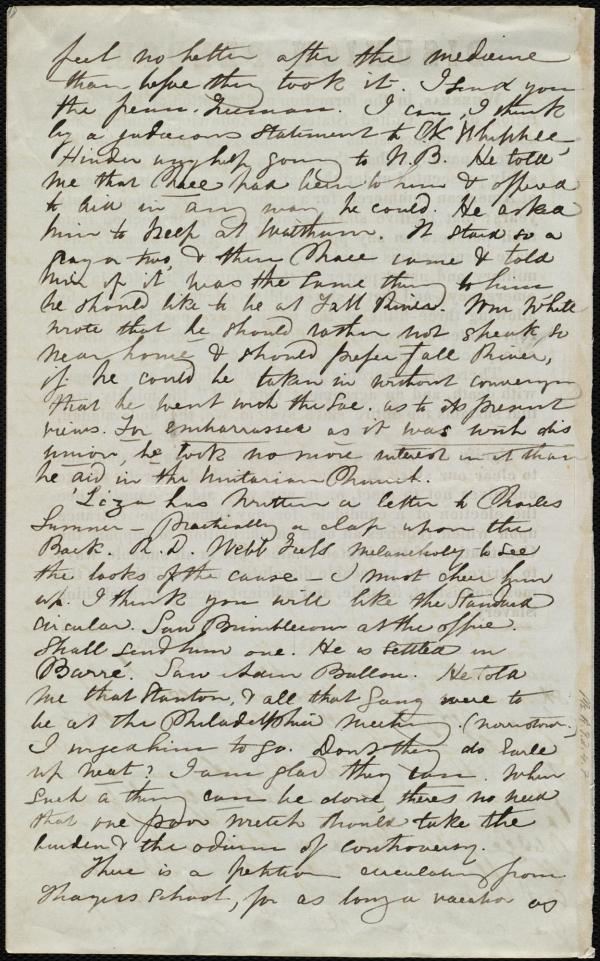 feel no better after the medicine
than before they took it. I send you
the Penn. Freeman. I can, I think
by a judicious statement to C.K. Whipple
Hinder any help going to N.B. He told
me that Chace had been to him & offered
to aid in any way he could. He asked
him to keep at Waltham. It stood so a
day or two, & then Chace came & told
him if it was the same thing to him
he should like to be at Fall River. Wm White
wrote that he should rather not speak so
near home & should prefer Fall River,
if he could be taken in without conveying
that he went with the Soc. as to its present
views. For embarrassed as it was with dis
union, he took no more interest in it than
he did in the Unitarian Church.
'Liza has written a letter to Charles
Sumner - practically a clap upon the
Back. R. D. Webb feels melancholy to see
the looks of the cause - I must cheer him
up. I think you will like the Standard
circular. Saw Brimblecom at the office.
Shall send him one. He is settled in
Barré. Saw Adin Ballou. He told
me that Stanton, & all that Gang were to
be at the Philadelphia Meeting.
I urged him to go. Don't they do
up neat? I am glad they can. When
such a thing can be done, theres no need
that one poor wretch should take the
burden & the odium of controversy.
There is a petition circulating from
Thayers School, for as long a vacation as